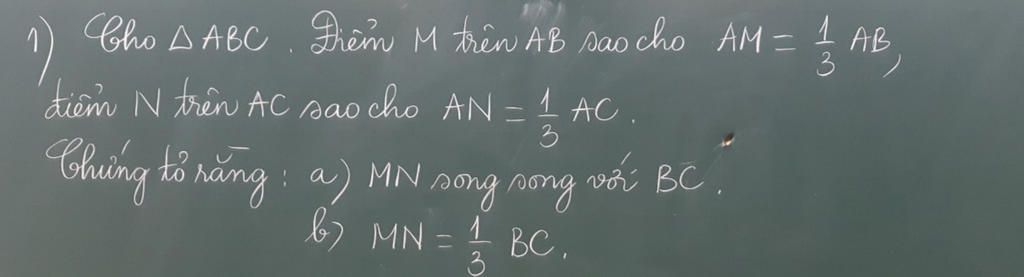 1) Cho △ABC. Điểm M trên AB sao cho AM = 1/3 AB,
điểm N trên AC sao cho AN = 1/3 AC.
Chứng tỏ rằng: a) MN song song với BC.
b) MN = 1/3 BC.